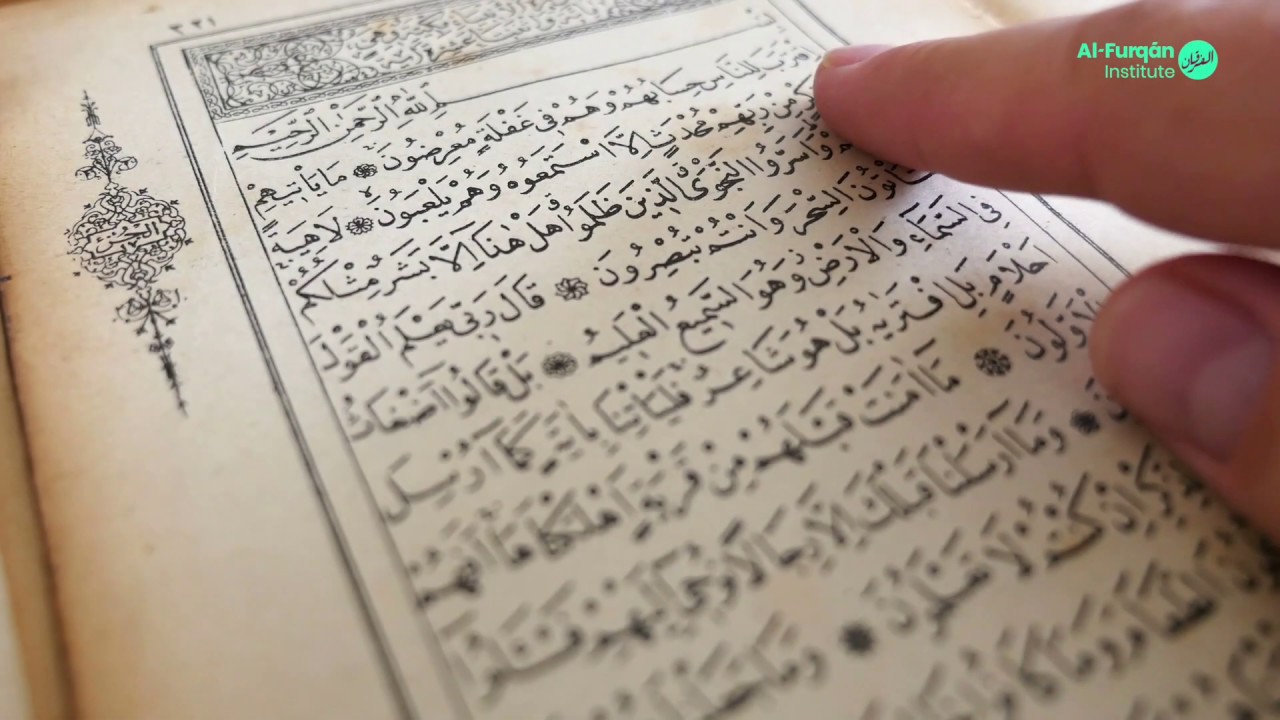 Al-Furqán
Institute
الفرقان
٣٢١
الرَّحْمٰنِ الرَّحِيمِ
لِلنَّاسِ حِسَابُهُمْ وَهُمْ فِى غَفْلَةٍ مُعْرِضُونَ ۝ مَا يَاْتِيهِمْ
مِنْ رَبِّهِمْ مُحْدَثٍ اِلَّا اسْتَمَعُوهُ وَهُمْ يَلْعَبُونَ ۝ لَاهِيَةً
وَاَسَرُّوا النَّجْوَى الَّذِينَ ظَلَمُوا هَلْ هٰذَا اِلَّا بَشَرٌ مِثْلُكُمْ
السِّحْرَ وَاَنْتُمْ تُبْصِرُونَ ۝ قَالَ رَبِّى يَعْلَمُ الْقَوْلَ
فِى السَّمَاءِ وَالْاَرْضِ وَهُوَ السَّمِيعُ الْعَلِيمُ ۝ بَلْ قَالُوا اَضْغَاثُ
اَحْلَامٍ بَلِ افْتَرٰيهُ بَلْ هُوَ شَاعِرٌ فَلْيَاْتِنَا بِاٰيَةٍ كَمَا اُرْسِلَ
الْاَوَّلُونَ ۝ مَا اٰمَنَتْ قَبْلَهُمْ مِنْ قَرْيَةٍ اَهْلَكْنَاهَا اَفَهُمْ
وَمَا اَرْسَلْنَا قَبْلَكَ اِلَّا رِجَالًا نُوحِى اِلَيْهِمْ فَسْـَٔلُوا
اِنْ كُنْتُمْ لَا تَعْلَمُونَ ۝ وَمَا
وَمَا كَانُوا